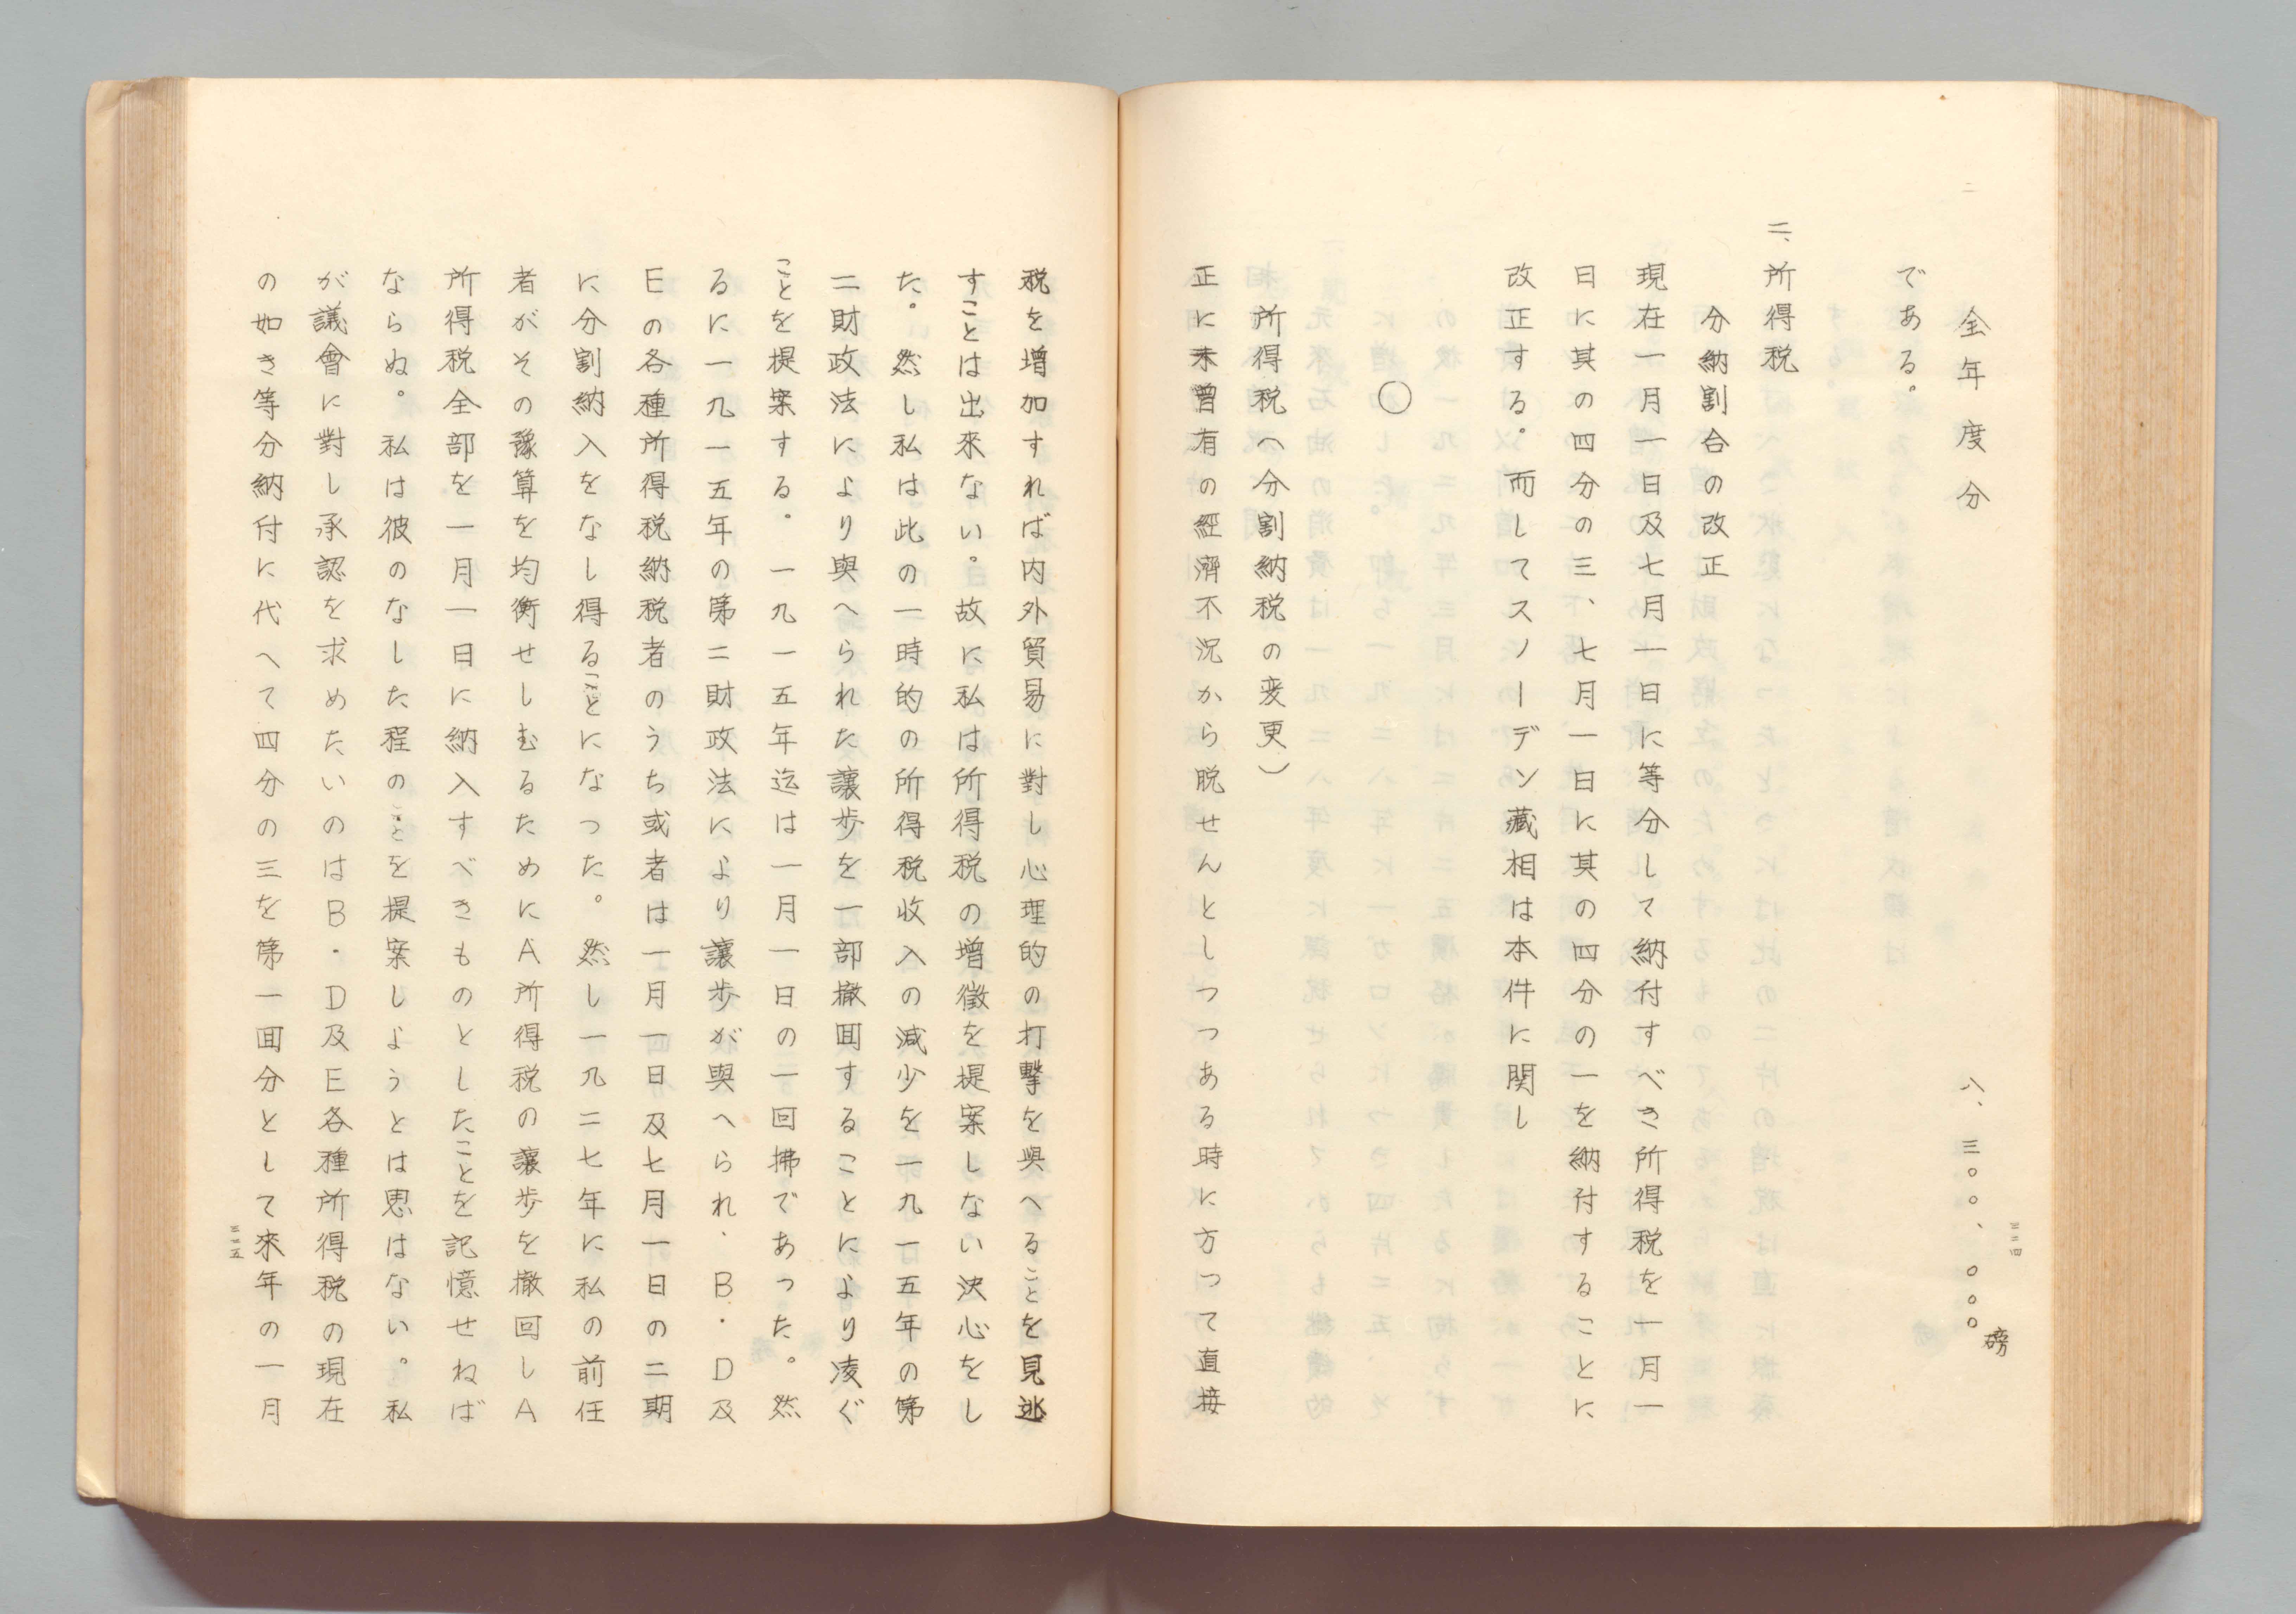 全年度分　八、三〇〇、〇〇〇磅
である。
二、所得税
分納割合の改正
現在一月一日及七月一日に等分して納付すべき所得税を一月一
日に其の四分の三、七月一日に其の四分の一を納付することに
改正する。而してスノーデン藏相は本件に関し
〇
所得税へ分割納税の変更）
正に未曽有の經濟不況から脱せんとしつつある時に方って直接
三二四
税を増加すれば内外貿易に對し心理的の打撃を與へることを見逃
すことは出來ない。故に私は所得税の増徴を提案しない決心をし
た。然し私は此の一時的の所得税收入の減少を一九一五年の第
二財政法により與へられた讓歩を一部撤回することにより凌ぐ
ことを提案する。一九一五年迄は一月一日の一回拂であった。然
るに一九一五年の第二財政法により讓歩が與へられ、B・D及
Eの各種所得税納税者のうち或者は一月一日及七月一日の二期
に分割納入をなし得ることになった。然し一九二七年に私の前任
者がその豫算を均衡せしむるためにA所得税の讓歩を撤回しA
所得税全部を一月一日に納入すべきものとしたことを記憶せねば
ならぬ。私は彼のなした程のことを提案しようとは思はない。私
が議會に對し承認を求めたいのはB・D及E各種所得税の現在
の如き等分納付に代へて四分の三を第一回分として來年の一月
三二五